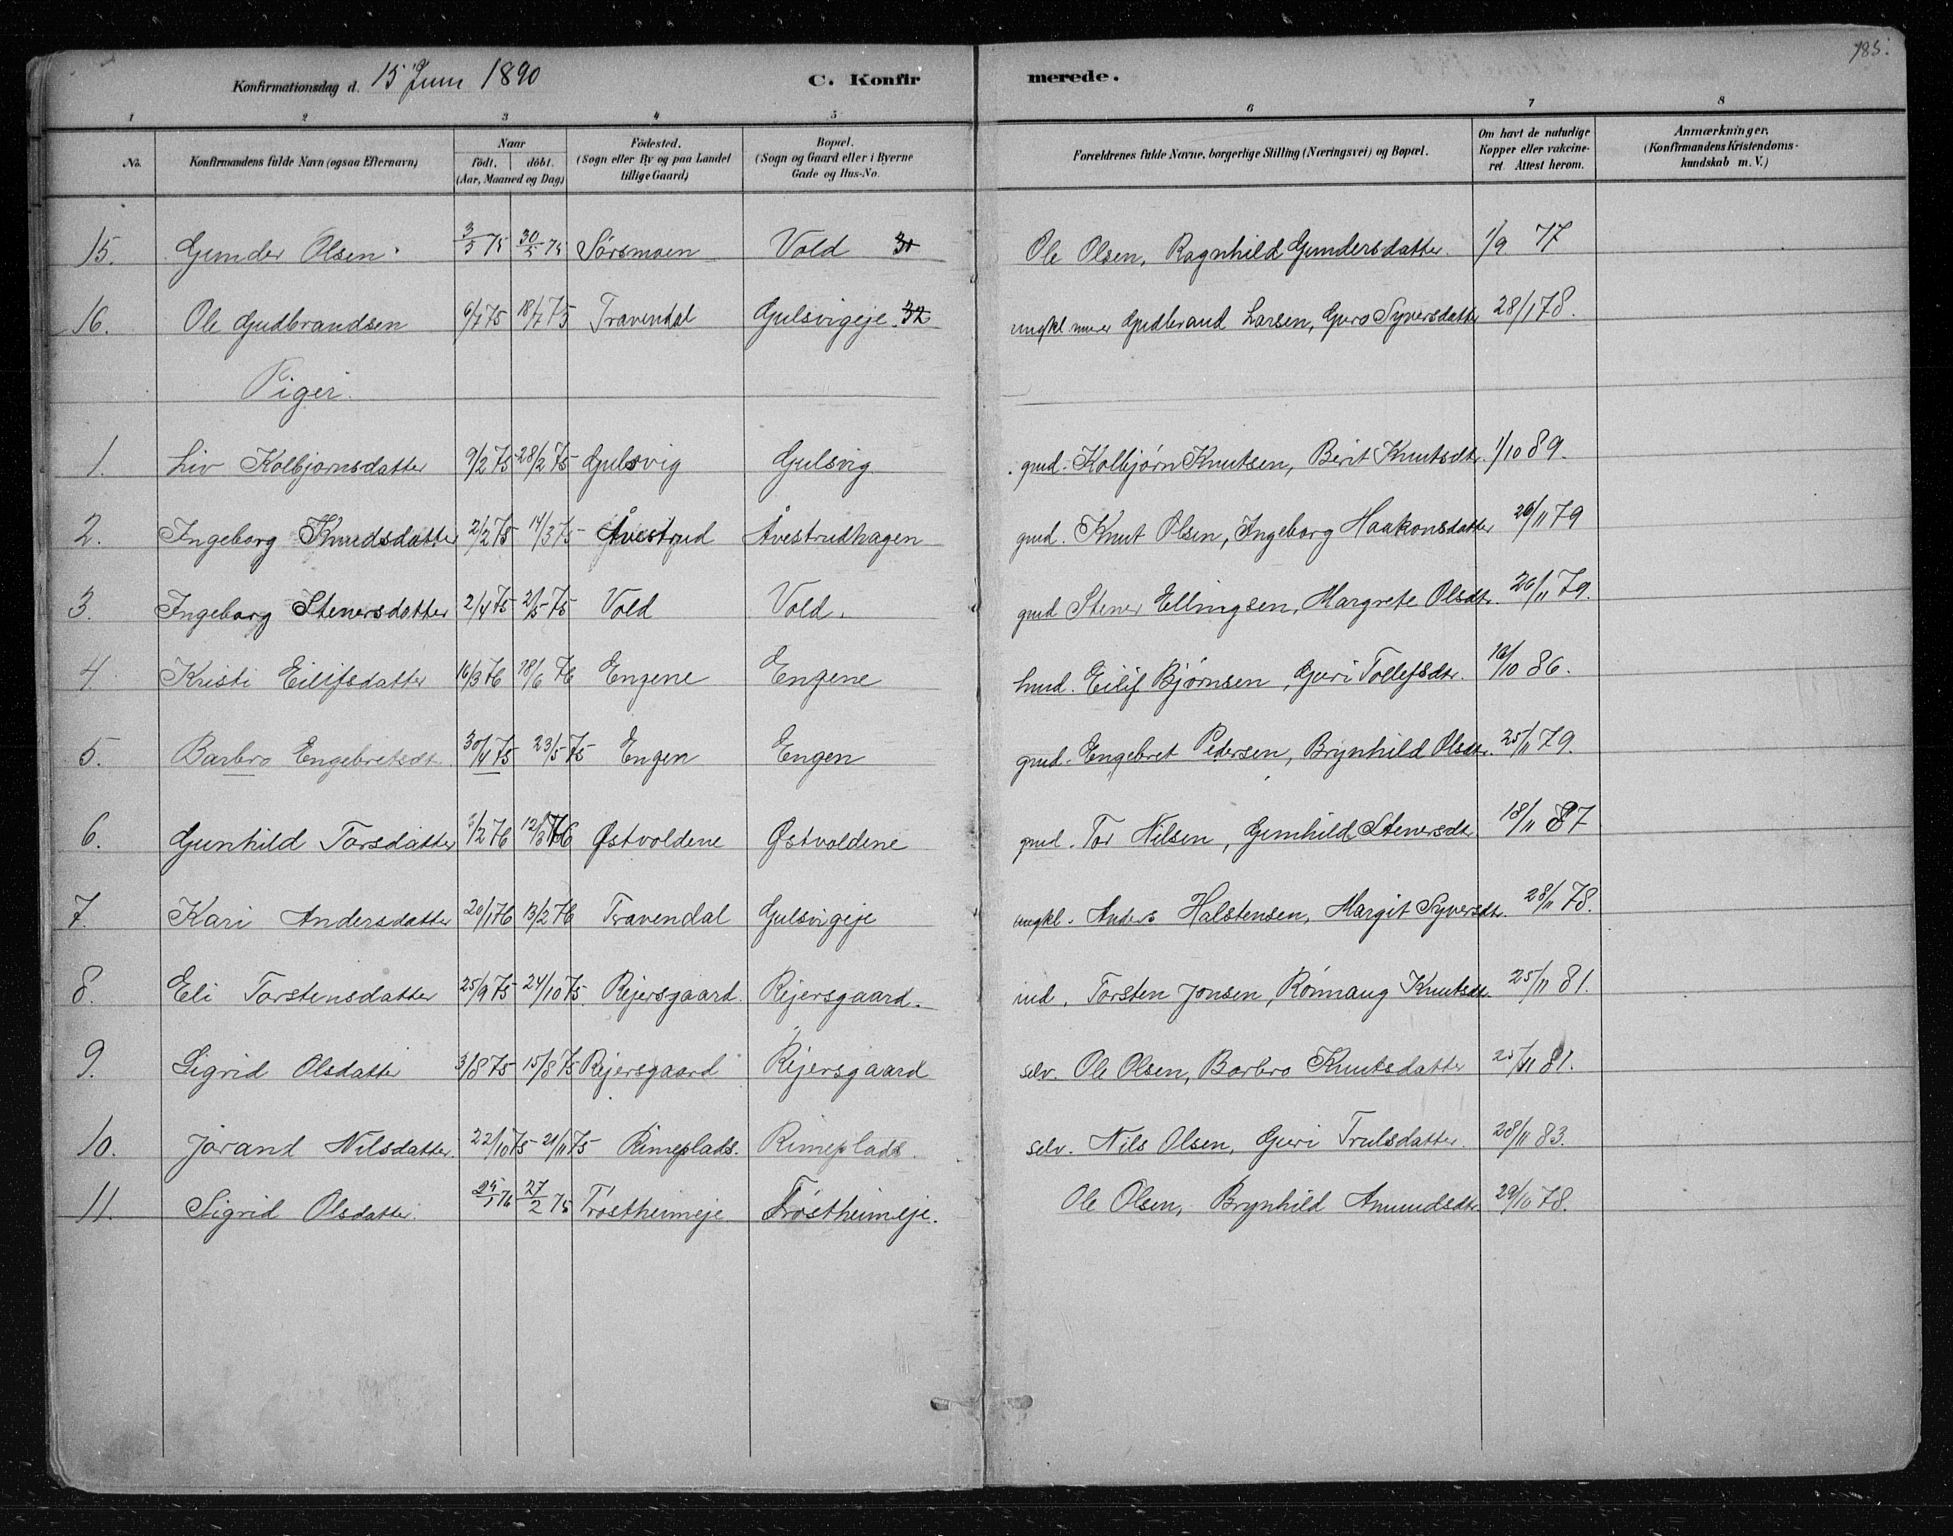 185.
Konfirmationsdag d. 15 Juni 1890 C. Konfirmerede.
1 2 3 4 5 6 7 8
No. Konfirmandens fulde Navn (ogsaa Efternavn) Naar födt. döbt. (Aar, Maaned og Dag) Födested. (Sogn eller By og paa Landet tillige Gaard) Bopæl. (Sogn og Gaard eller i Byerne Gade og Hus-No. Forældrenes fulde Navne, borgerlige Stilling (Næringsvei) og Bopæl. Om havt de naturlige Kopper eller vakcineret. Attest herom. Anmærkninger. (Konfirmandens Kristendomskundskab m. V.)
15. Gunder Olsen 3/5 75 30/5 75 Sørsmoen Vold 31 Ole Olsen, Ragnhild Gundersdatter. 1/9 77
16. Ole Gudbrandsen 6/7 75 18/7 75 Travendal Gulsvigeje 32 ungkl. Gudbrand Larsen, Guro Syversdatter 28/1 78.
Piger.
1. Liv Kolbjørnsdatter 9/2 75 28/2 75 Gulsvig Gulsvig grd. Kolbjørn Knutsen, Berit Knutsdtr. 1/10 89.
2. Ingeborg Knudsdatter 2/2 75 14/3 75 Åvestrud Åvestrudhagen grd. Knut Olsen, Ingeborg Haakonsdatter 26/11 79
3. Ingeborg Stenersdatter 2/4 75 2/5 75 Vold Vold. grd Stener Ellingsen, Margrete Olsdtr. 26/11 79.
4. Kristi Eilifsdatter 16/3 76 18/6 76 Engene Engene husd. Eilif Bjørnsen, Guri Tollefsdtr. 16/10 86.
5. Barbro Engebretsdt. 30/4 75 23/5 75 Engen Engen grd. Engebret Pedersen, Brynhild Olsdtr. 25/11 79.
6. Gunhild Torsdatter /2 76 12/3 76 Østvoldene Østvoldene grd. Tor Nilsen, Gunhild Stenersdtr 18/11 87
7. Kari Andersdatter 20/1 76 13/2 76 Travendal Gulsvigeje ungkl. Anders Halstensen, Margit Syversdtr. 28/11 78.
8. Eli Torstensdatter 25/9 75 24/10 75 Rejersgaard. Rejersgaard. ind. Torsten Jonsen, Rønnaug Knutsdtr. 25/11 81.
9. Sigrid Olsdatter 3/8 75 15/8 75 Rejersgaard Rejersgaard selv. Ole Olsen, Barbro Knutsdatter 25/11 81.
10. Jørand Nilsdatter. 22/10 75 21/11 75 Rimeplads. Rimeplads. selv. Nils Olsen, Guri Trulsdatter. 28/11 83.
11. Sigrid Olsdatter. 24/1 76 27/2 75 Trøstheimeje Trøstheimeje. Ole Olsen, Brynhild Amundsdtr. 29/10 78.